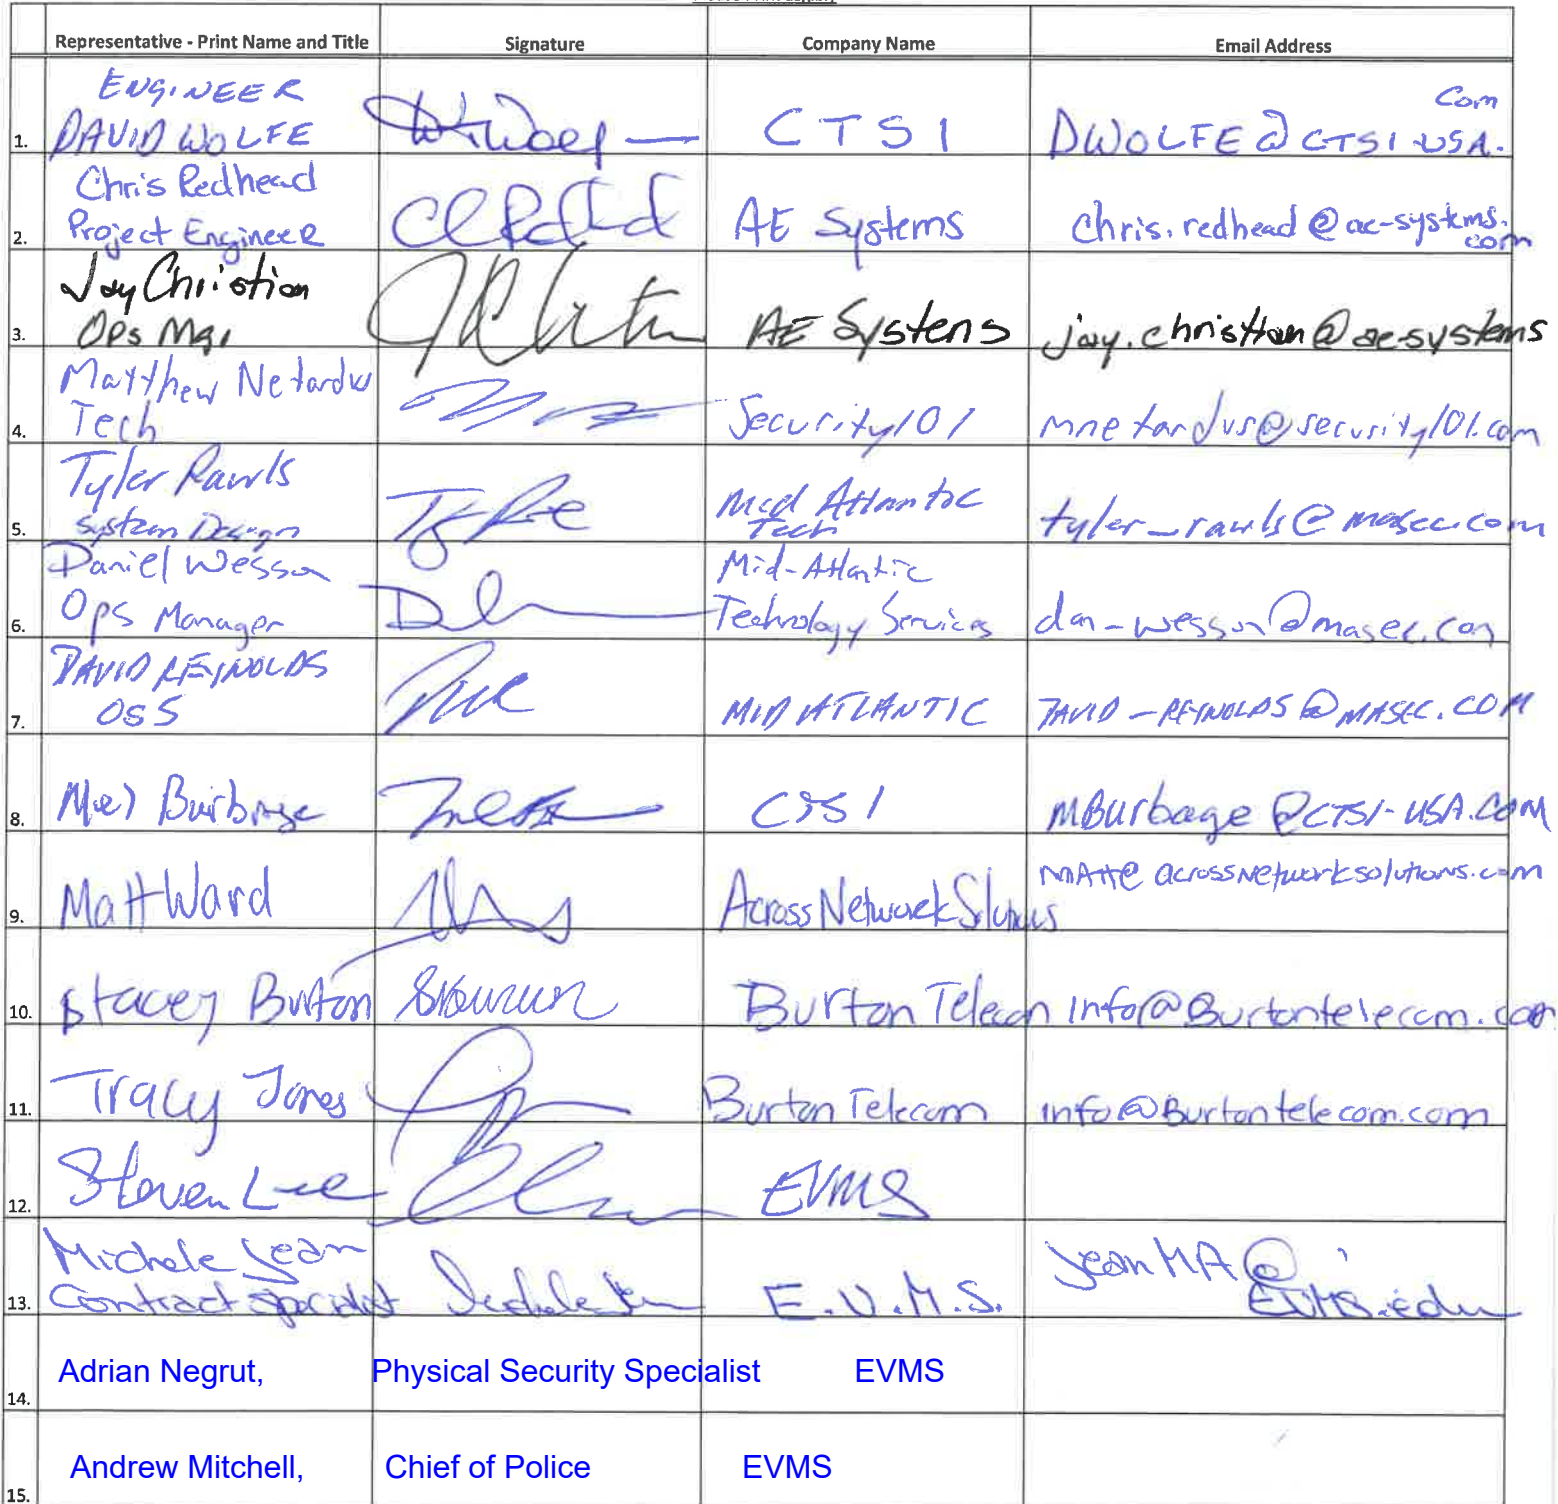 Representative - Print Name and Title Signature Company Name Email Address
ENGINEER Com
1. DAVID WOLFE CTSI DWOLFE@CTSI-USA.
Chris Redhead
2. Project Engineer AE Systems chris.redhead@ae-systems.
com
Jay Christian
3. Ops Mgr AE Systems jay.christian@ae-systems
Matthew Netardus
4. Tech Security101 mnetardus@security101.com
Tyler Rawls Mid Atlantic
5. System Design Tech tyler_rawls@masec.com
Daniel Wesson Mid-Atlantic
6. Ops Manager Technology Services dan-wesson@masec.com
DAVID REYNOLDS
7. OSS MID ATLANTIC DAVID-REYNOLDS@MASEC.COM
8. Mel Burbage CTSI MBurbage@CTSI-USA.COM
MATT@acrossnetworksolutions.com
9. Matt Ward Across Network Solutions
10. Stacey Burton Burton Telecom Info@Burtontelecom.com
11. Tracy Jones Burton Telecom info@Burtontelecom.com
12. Steven Lee EVMS
Michele Jean JeanMA@
13. Contract specialist E.V.M.S. EVMS.edu
Adrian Negrut, Physical Security Specialist EVMS
14.
Andrew Mitchell, Chief of Police EVMS
15.